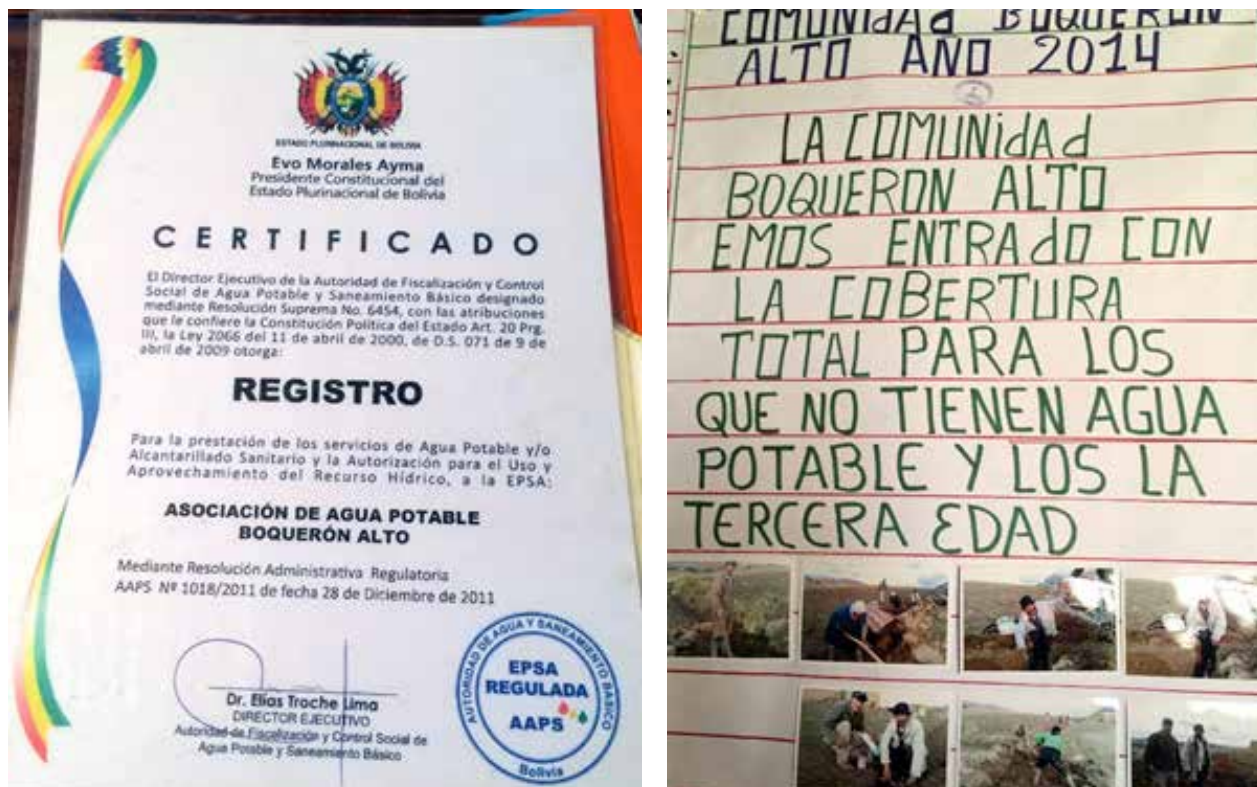 ESTADO PLURINACIONAL DE BOLIVIA
Evo Morales Ayma
Presidente Constitucional del
Estado Plurinacional de Bolivia
CERTIFICADO
El Director Ejecutivo de la Autoridad de Fiscalización y Control
Social de Agua Potable y Saneamiento Básico designado
mediante Resolución Suprema No. 6454, con las atribuciones
que le confiere la Constitución Política del Estado Art. 20 Prg.
III, la Ley 2066 del 11 de abril de 2000, de D.S. 071 de 9 de
abril de 2009 otorga:
REGISTRO
Para la prestación de los servicios de Agua Potable y/o
Alcantarillado Sanitario y la Autorización para el Uso y
Aprovechamiento del Recurso Hídrico, a la EPSA:
ASOCIACIÓN DE AGUA POTABLE
BOQUERÓN ALTO
Mediante Resolución Administrativa Regulatoria
AAPS Nº 1018/2011 de fecha 28 de Diciembre de 2011
Dr. Elías Troche Lima
DIRECTOR EJECUTIVO
Autoridad de Fiscalización y Control Social de
Agua Potable y Saneamiento Básico
AUTORIDAD DE AGUA Y SANEAMIENTO BÁSICO
EPSA
REGULADA
AAPS
Bolivia
COMUNIdAd BOQUERON
ALTO AÑO 2014
LA COMUNIdAd
BOQUERON ALTO
EMOS ENTRAdO CON
LA COBERTURA
TOTAL PARA LOS
QUE NO TIENEN AGUA
POTABLE Y LOS LA
TERCERA EDAD